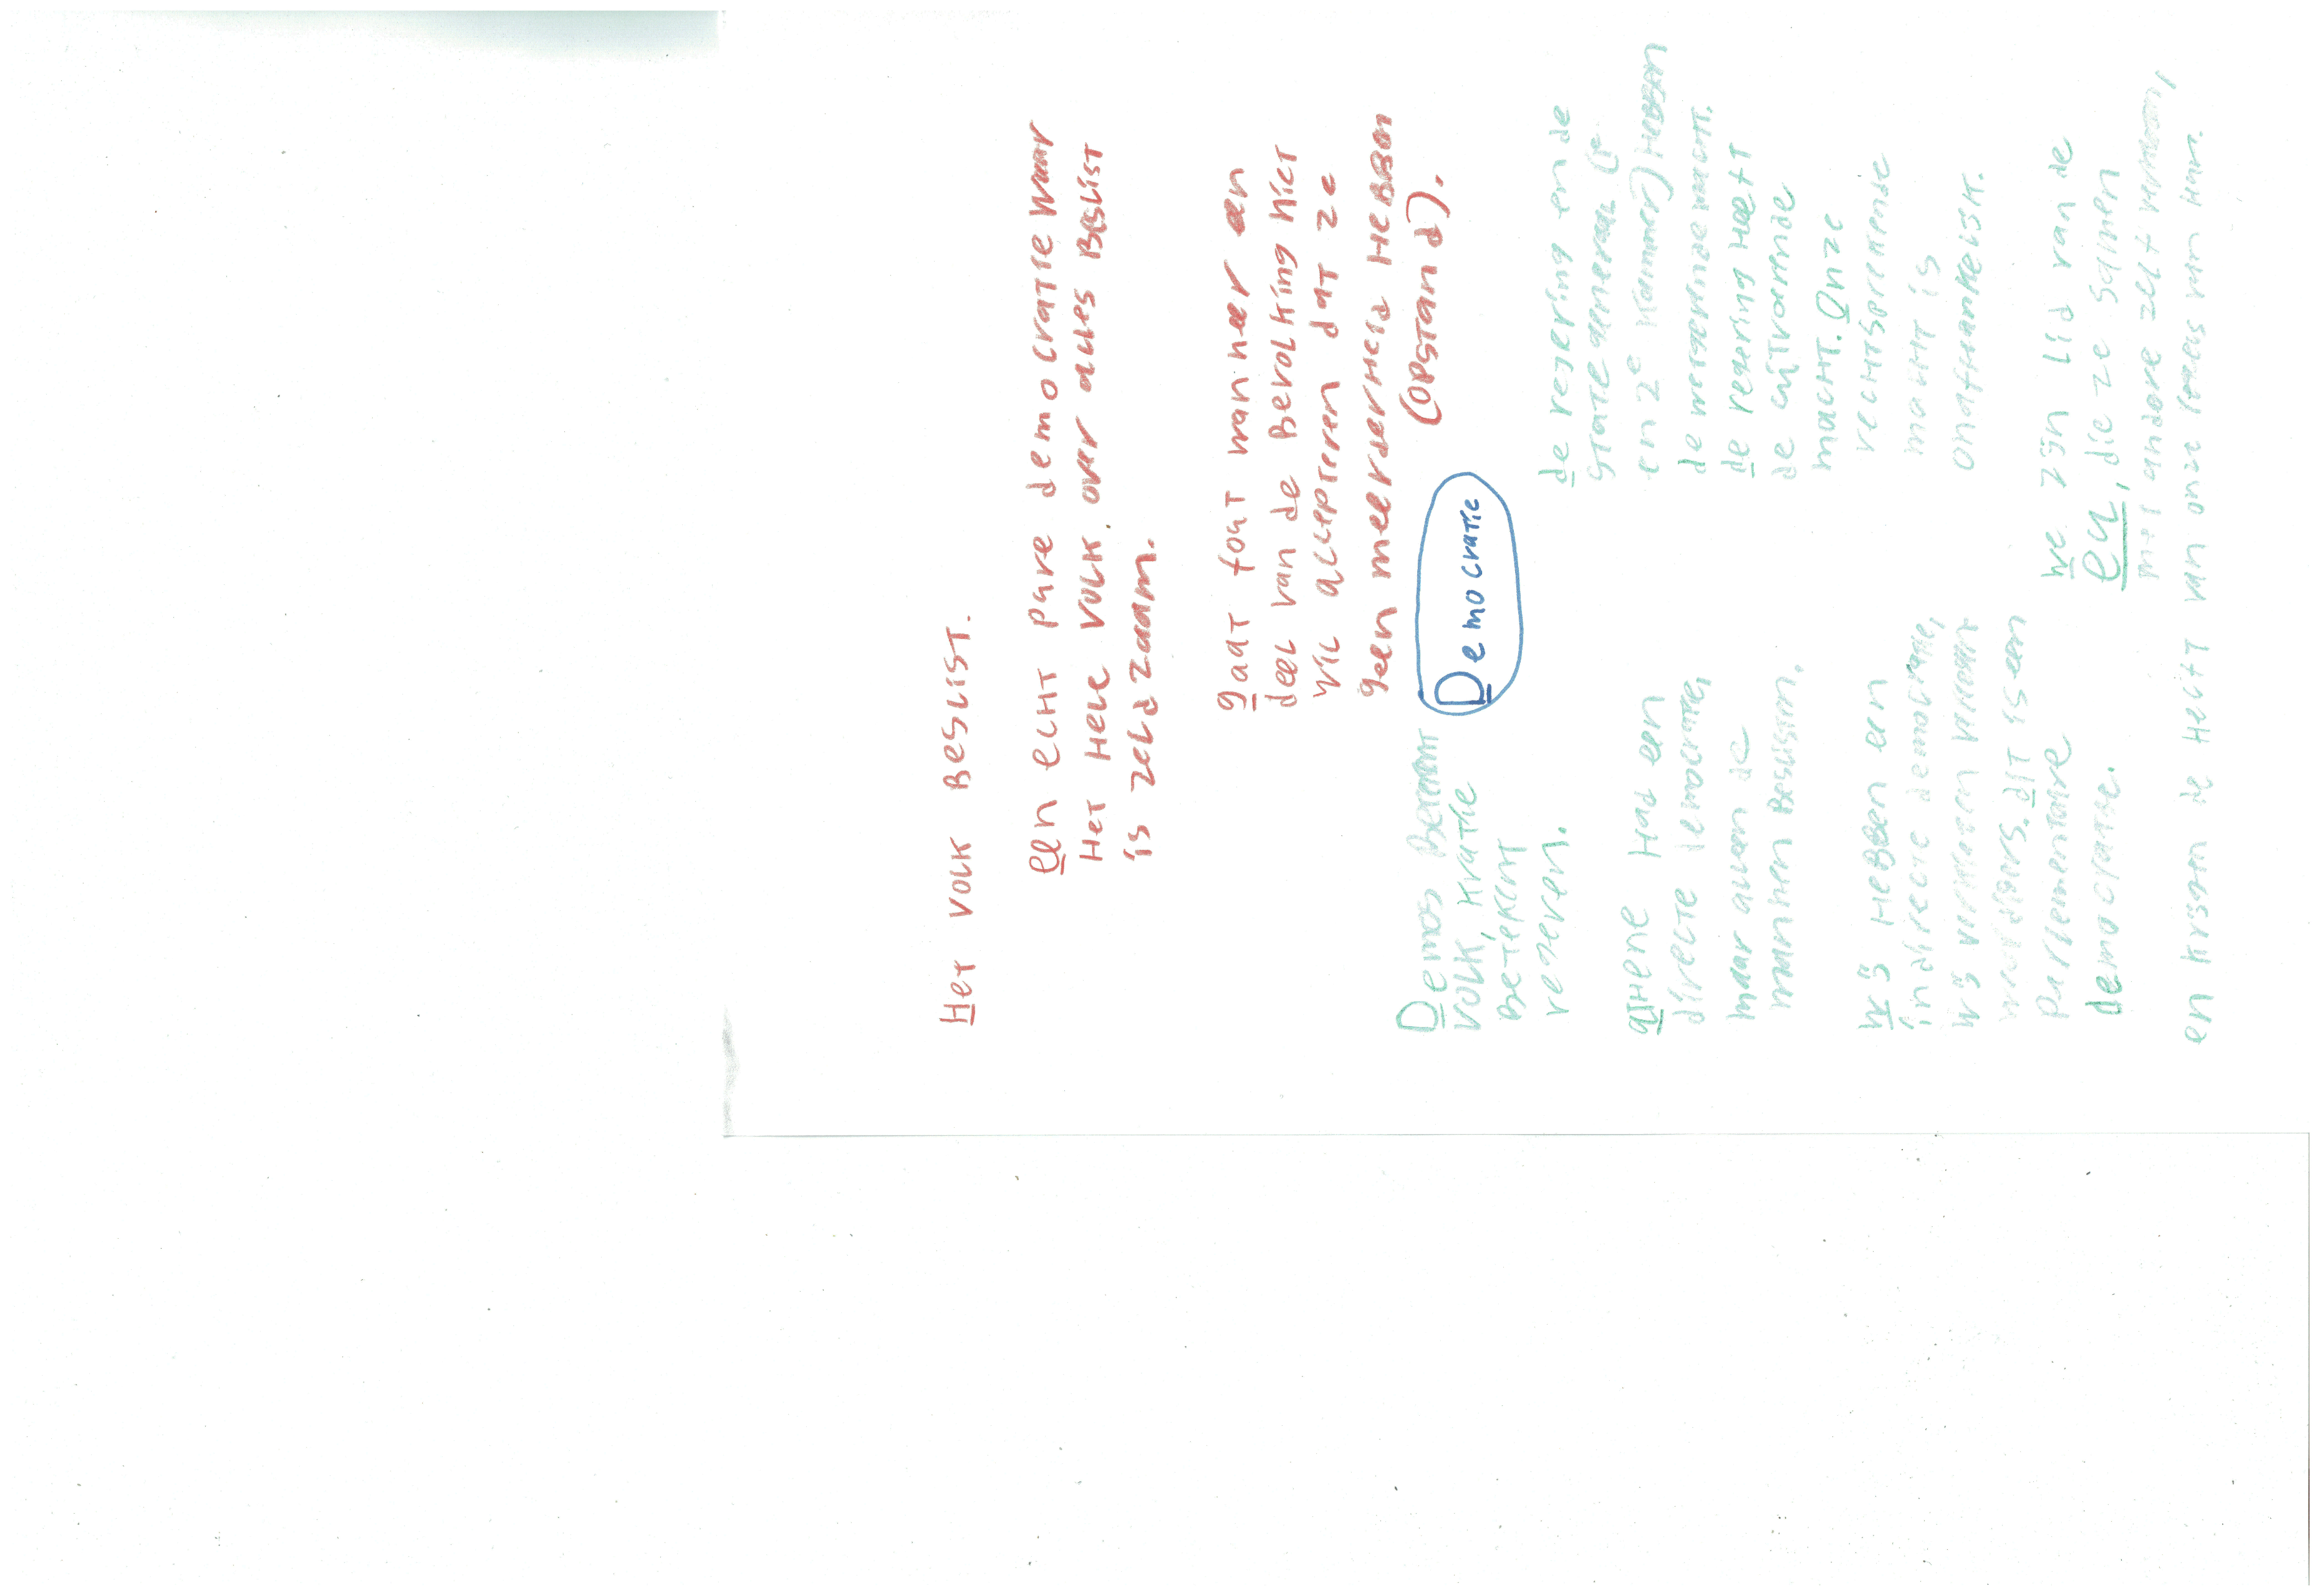 Het volk beslist.
een echt pure democratie waar
het hele volk over alles beslist
is zeldzaam.
gaat fout wanneer een
deel van de bevolking niet
wil accepteren dat ze
geen meerderheid hebben
(opstand).
Democratie
Demos betekent
volk, kratie
betekent
regeren.
athene had een
directe democratie,
maar alleen de
mannen beslissen.
wij hebben een
indirecte democratie,
wij
dit is een
parlementaire
democratie.
de regering en de
state generaal (1e
en 2e kamer) hebben
de wetgevende macht.
de regering heeft
de uitvoerende
macht. Onze
rechtsprekende
macht is
onafhankelijk.
we zijn lid van de
eu, die ze samen
met andere
en krijgen de helft van onze regels van hun.